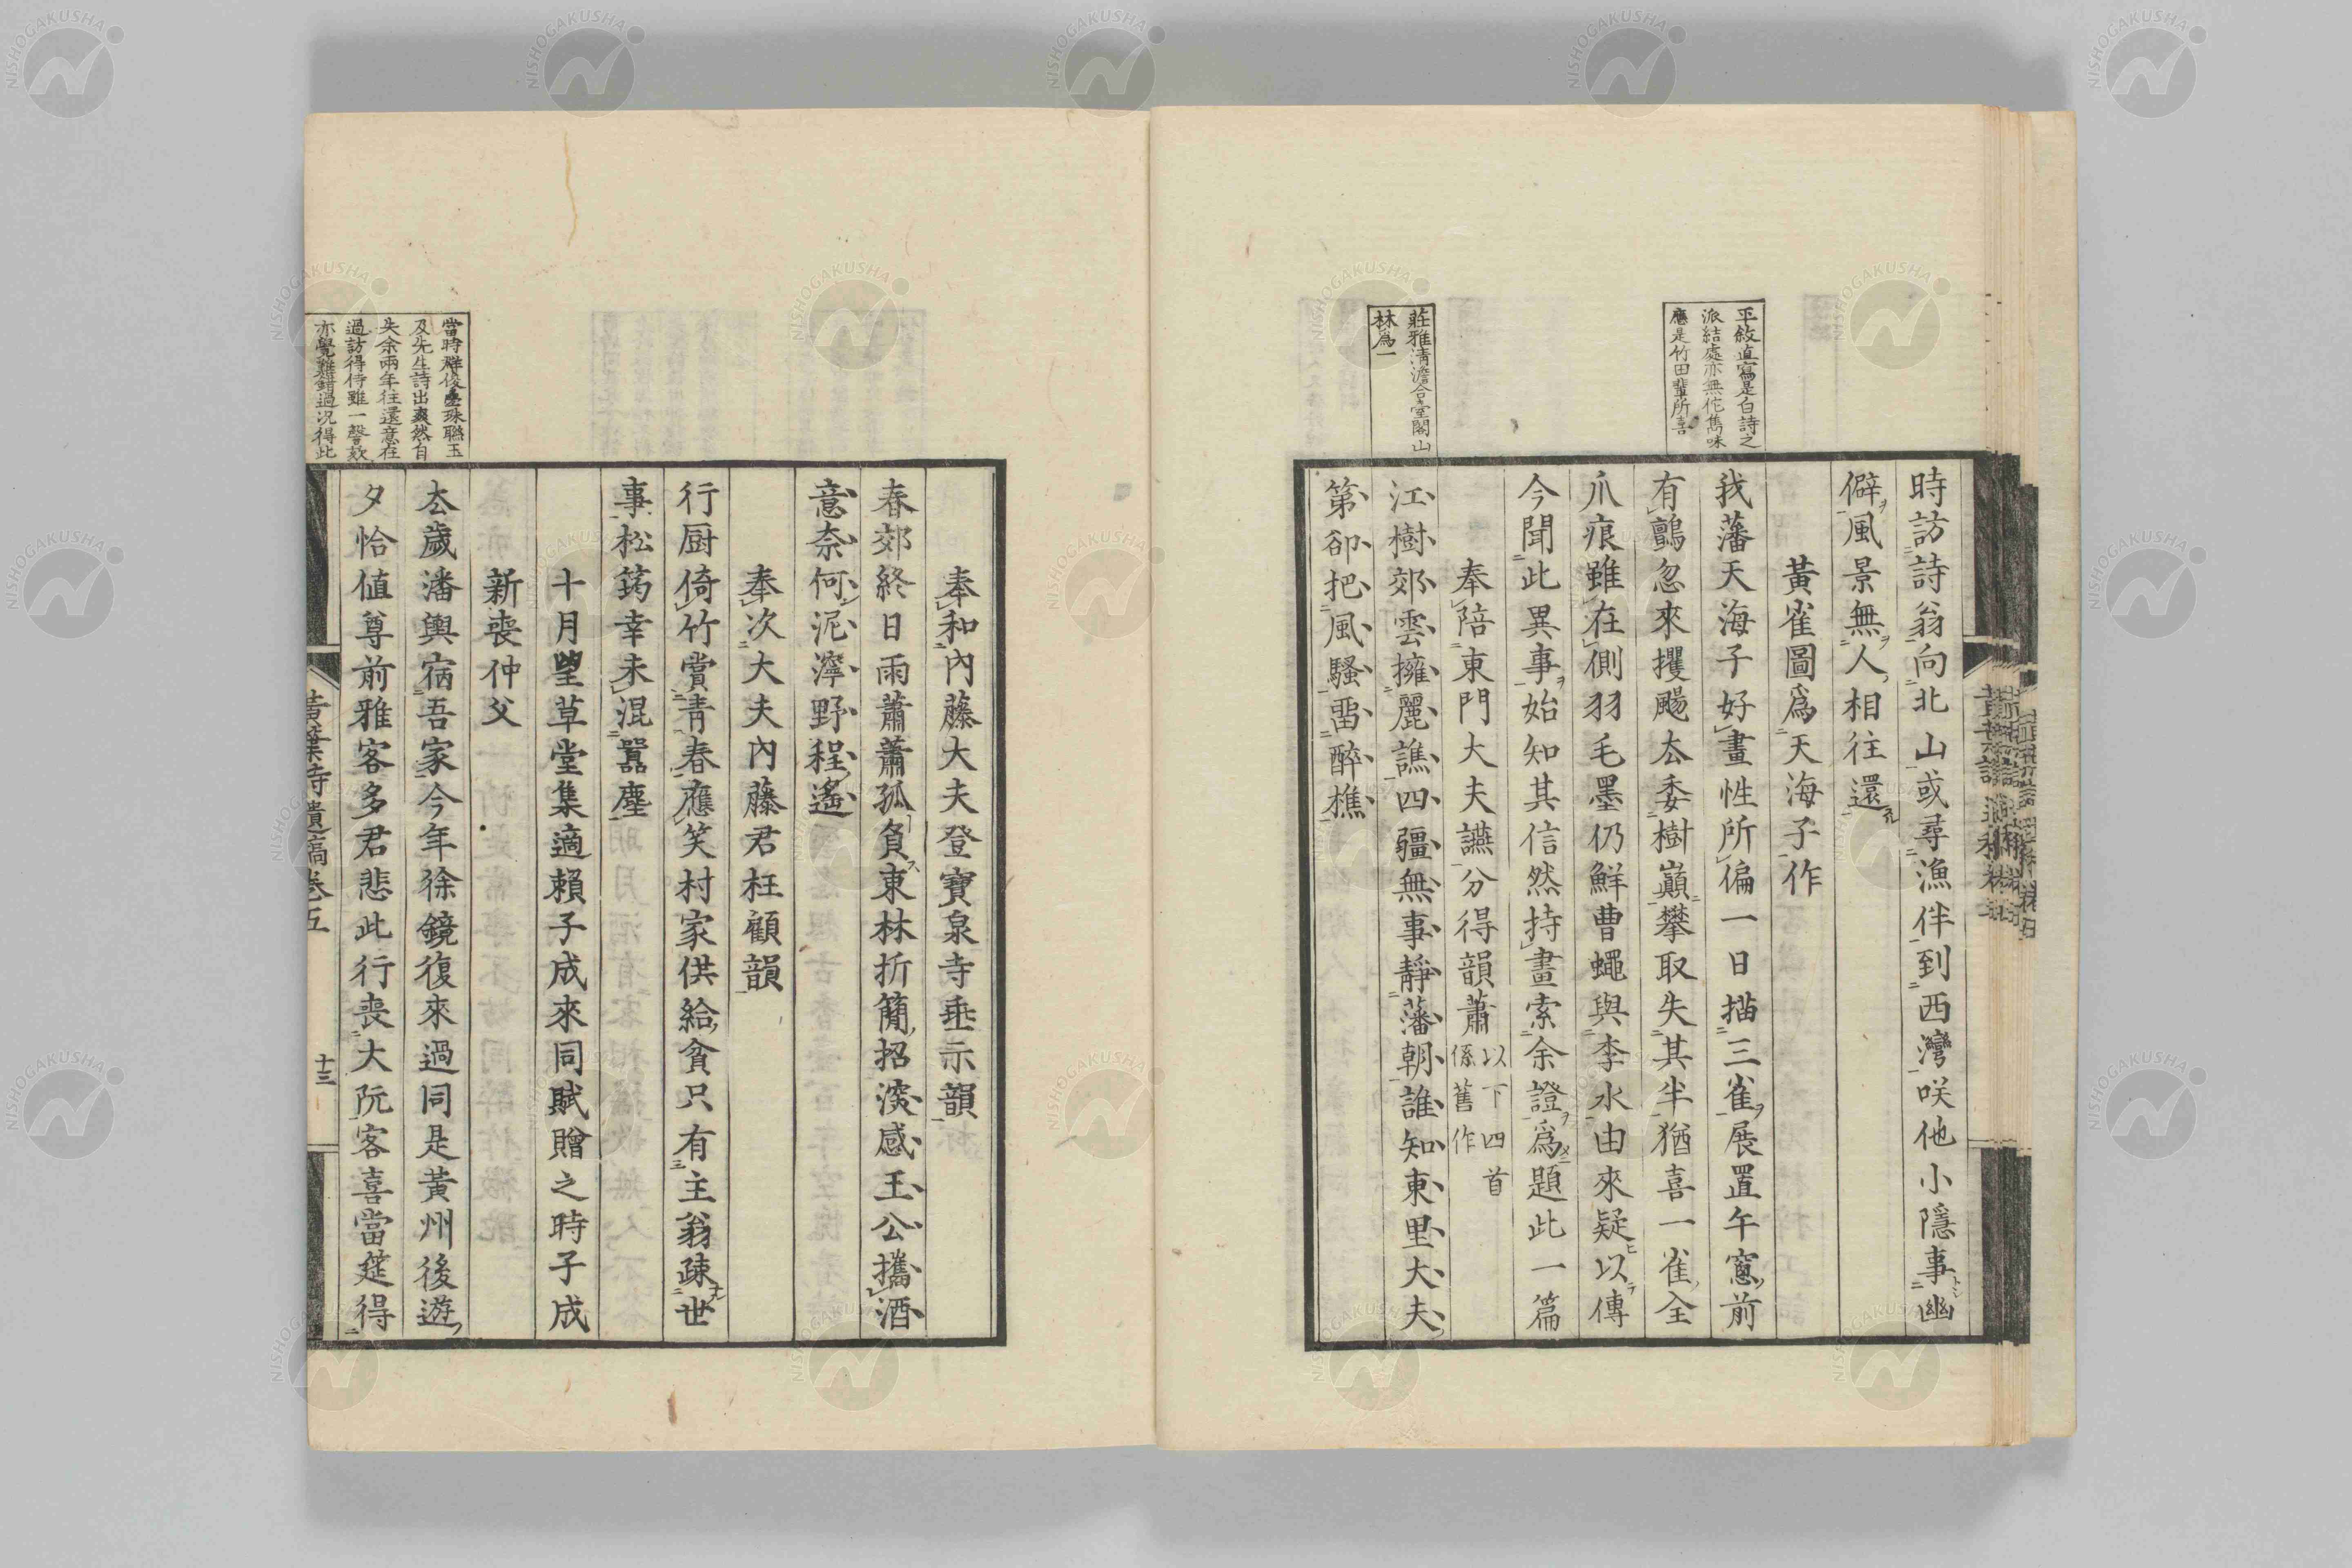 時訪詩翁向北山或尋漁伴到西灣咲他小隱事幽
僻風景無人相往還
黃雀圖爲天海子作
平敘直寫是白詩之
派結處亦無佗雋味
應是竹田輩所喜
我藩天海子好畫性所偏一日描三雀展置午窻前
有鸇忽來攫颺厺委樹巔攀取失其半猶喜一雀全
爪痕雖在側羽毛墨仍鮮曹蠅與李水由來疑以傳
今聞此異事始知其信然持畫索余證爲題此一篇
奉陪東門大夫讌分得韻蕭以下四首係舊作
莊雅清澹合臺閣山
林爲一
江樹郊雲擁麗譙四疆無事靜藩朝誰知東里大夫
第卻把風騷畱醉樵
奉和內藤大夫登寶泉寺垂示韻
春郊終日雨蕭蕭孤負東林折簡招深感王公攜酒
意奈何泥濘野程遙
奉次大夫內藤君枉顧韻
行厨倚竹賞靑春應笑村家供給貧只有主翁疎世
事松筠幸未混囂塵
十月望草堂集適賴子成來同賦贈之時子成
新喪仲父
當時群俊壘珠聯玉
及先生詩出爽然自
失余兩年往還意在
過訪得侍雖一謦欬
亦覺難錯過况得此
厺歲潘輿宿吾家今年徐鏡復來過同是黃州後遊
夕恰値尊前雅客多君悲此行喪大阮客喜當筵得
黃葉夕陽村舍詩遺稿卷五
十三
NISHOGAKUSHA